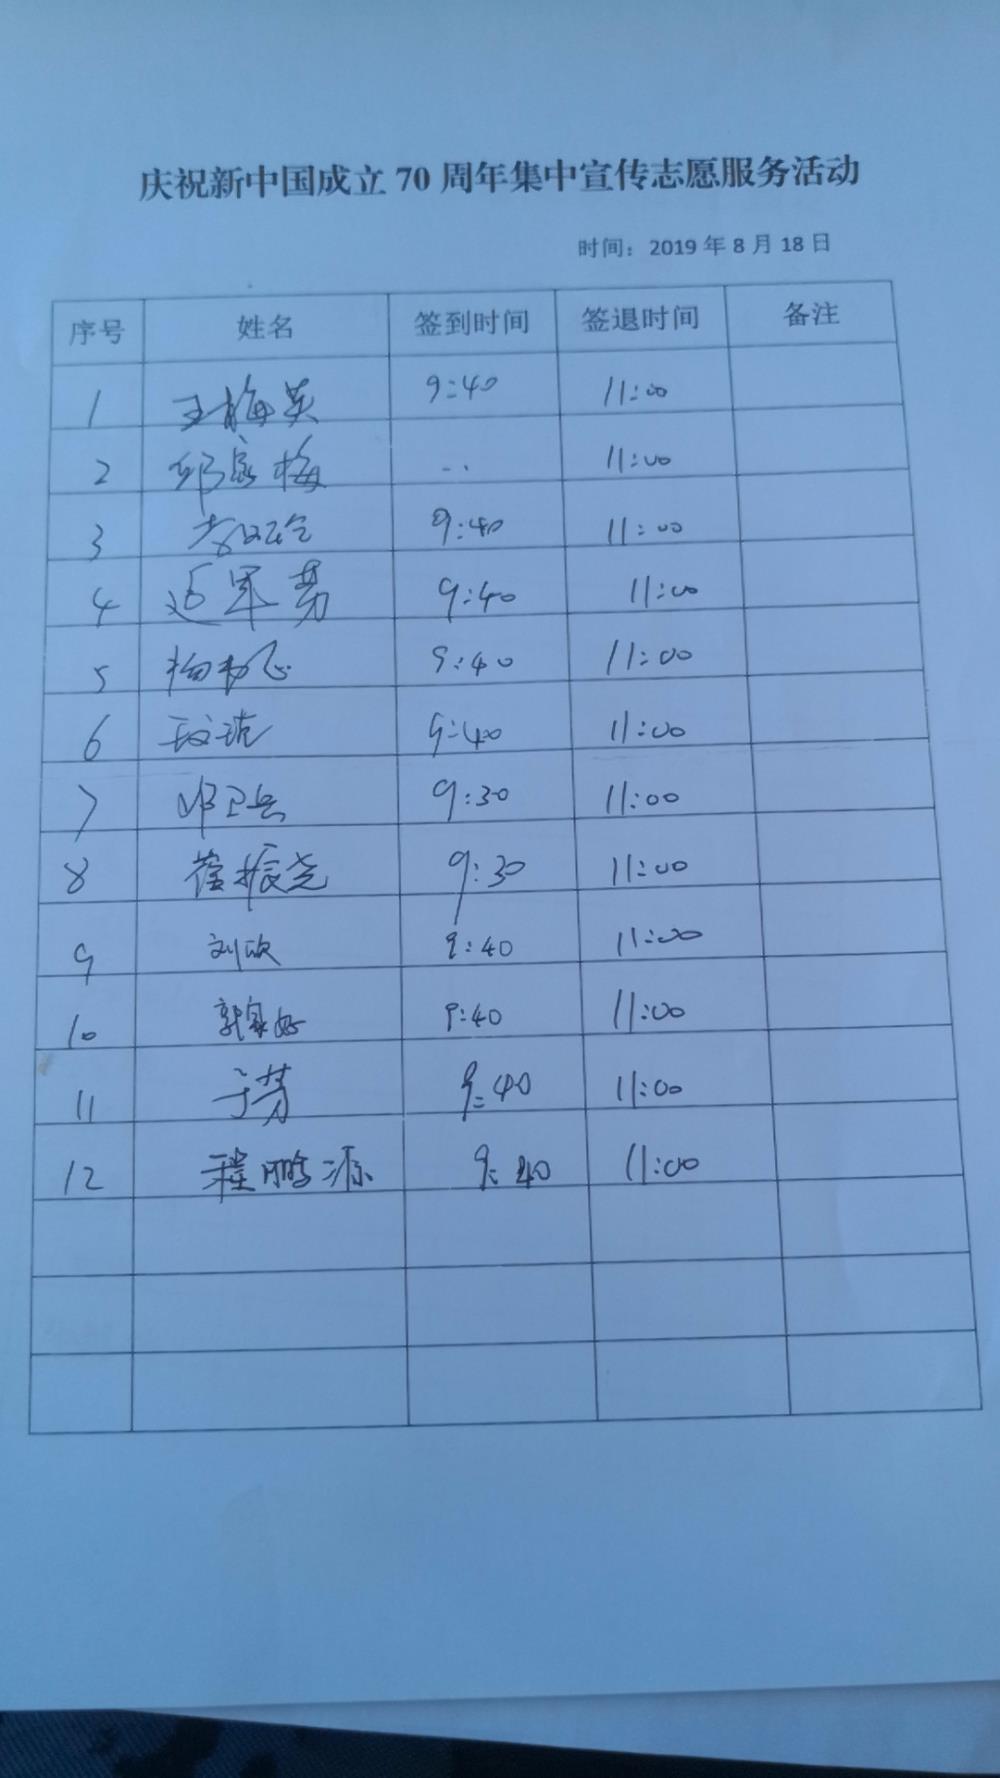 庆祝新中国成立70周年集中宣传志愿服务活动
时间：2019年8月18日
序号 姓名 签到时间 签退时间 备注
1 王梅英 9:40 11:00
2 梅 .. 11:00
3 9:40 11:00
4 军 9:40 11:00
5 杨 9:40 11:00
6 9:40 11:00
7 邓卫兵 9:30 11:00
8 振尧 9:30 11:00
9 刘欣 9:40 11:00
10 郭家好 9:40 11:00
11 于芳 9:40 11:00
12 程鹏源 9:40 11:00